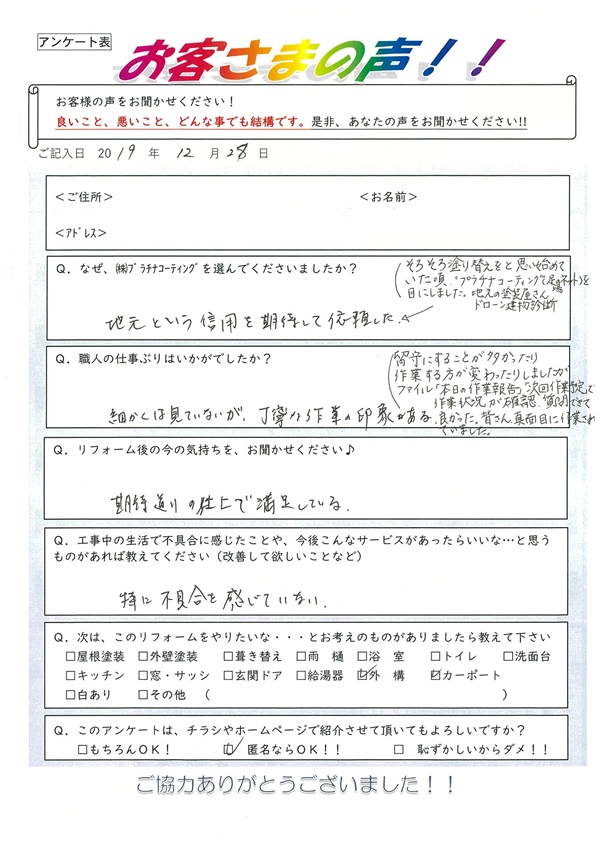 アンケート表
お客さまの声！！
お客様の声をお聞かせください！
良いこと、悪いこと、どんな事でも結構です。是非、あなたの声をお聞かせください!!
ご記入日 2019 年 12 月 28 日
＜ご住所＞ ＜お名前＞
＜ｱﾄﾞﾚｽ＞
Q．なぜ、㈱ﾌﾟﾗﾁﾅｺｰﾃｨﾝｸﾞを選んでくださいましたか？
そろそろ塗り替えをと思い始めて
いた頃、「プラチナコーティングで足場ネット」を
目にしました。地元の塗装屋さん
ドローン建物診断
地元という信用を期待して依頼した。
Q．職人の仕事ぶりはいかがでしたか？
留守にすることが多かったり
作業する方が変わったりしましたが
ファイル「本日の作業報告」「次回作業予定」で
作業状況が確認、質問できて
良かった。皆さん真面目に作業され
ていました。
細かくは見ていないが、丁寧な作業の印象がある
Q．リフォーム後の今の気持ちを、お聞かせください♪
期待通りの仕上で満足している。
Q．工事中の生活で不具合に感じたことや、今後こんなサービスがあったらいいな…と思う
ものがあれば教えてください（改善して欲しいことなど）
特に不具合を感じていない。
Q．次は、このリフォームをやりたいな・・・とお考えのものがありましたら教えて下さい
□屋根塗装 □外壁塗装 □葺き替え □雨 樋 □浴 室 □トイレ □洗面台
□キッチン □窓・サッシ □玄関ドア □給湯器 ☑外 構 ☑カーポート
□白あり □その他 （ ）
Q．このアンケートは、チラシやホームページで紹介させて頂いてもよろしいですか？
□もちろんOK！ ☑ 匿名ならOK！！ □ 恥ずかしいからダメ！！
ご協力ありがとうございました！！